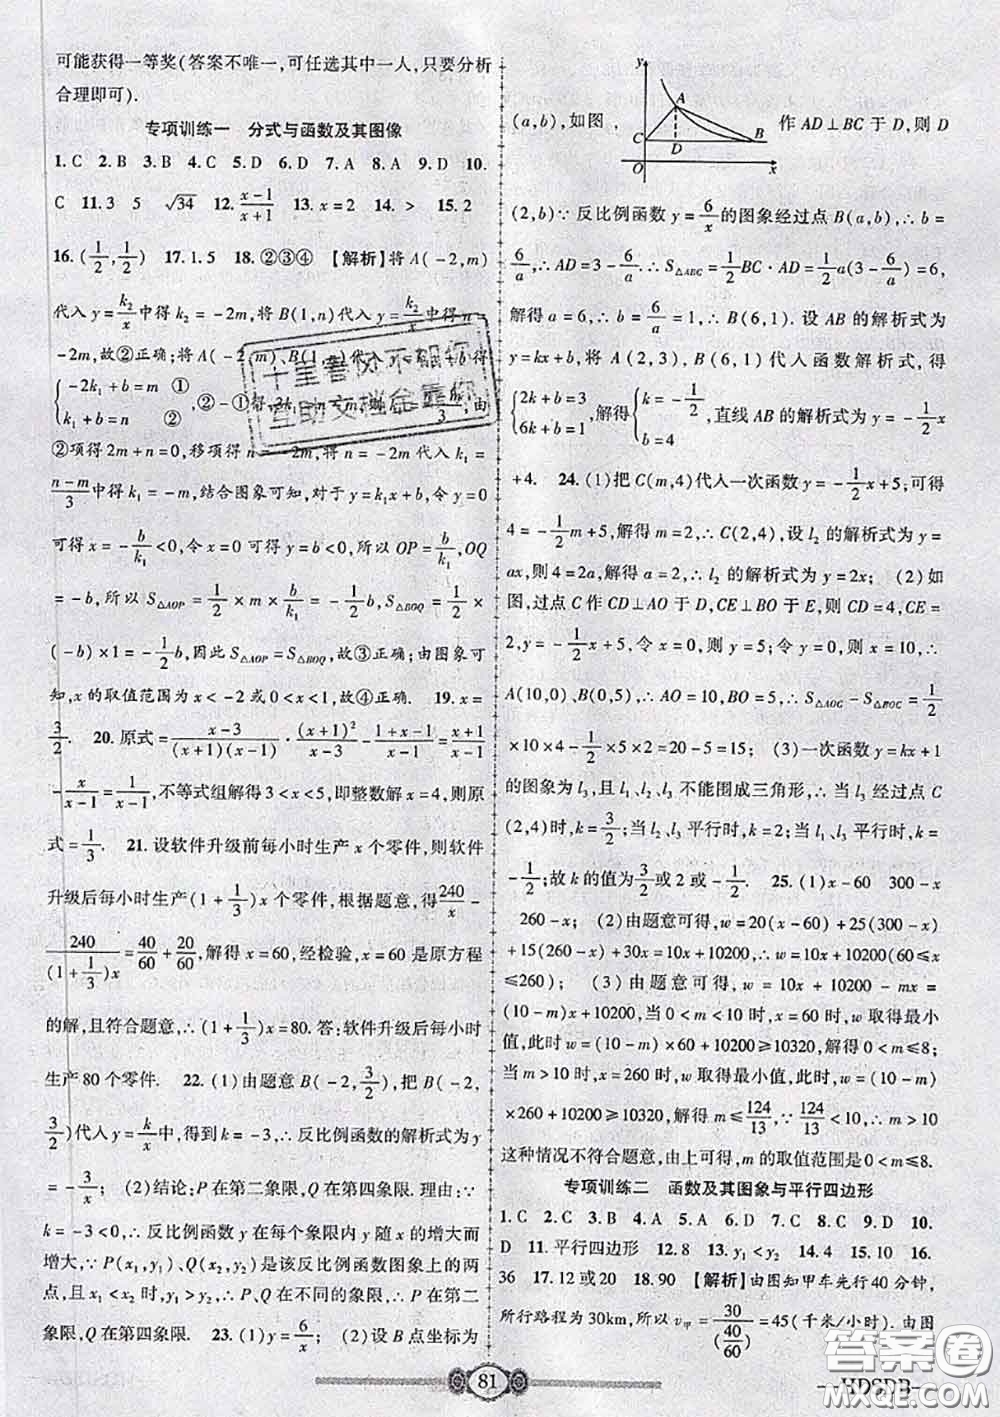 可能获得一等奖(答案不唯一,可任选其中一人,只要分析
合理即可).
专项训练一 分式与函数及其图像
1. C 2. B 3. B 4. C 5. D 6. D 7. A 8. A 9. D 10.
C 11. 3 5 √34 12. (x-1)/(x+1) 13. x=2 14. > 15. 2
16. (1/2, 1/2) 17. 1. 5 18. ②③④ 【解析】将 A(-2,m)
代入 y=k₂/x 中得 k₂=-2m,将 B(1,n)代入 y=k₂/x 中得 n=
-2m,故②正确;将 A(-2,m)、B(1,
{-2k₁+b=m ① k₁+b=n ②
②项得 2m+n=0,移项得 n=-2m,将 n=-2m 代入 k₁=
(n-m)/3 中得 k₁=-m,结合图象可知,对于 y=k₁x+b,令 y=0
可得 x=-b/k₁<0,令 x=0 可得 y=b<0,所以 OP=b/k₁,OQ
=-b,所以 S△AOP=1/2×m×b/k₁=-1/2b,S△BOQ=1/2×
(-b)×1=-1/2b,因此 S△AOP=S△BOQ,故③正确;由图象可
知,x 的取值范围为 x<-2 或 0<x<1,故④正确. 19. x=
3/2. 20. 原式=(x-3)/((x+1)(x-1))·(x+1)²/(x-3)-(1+x-1)/(x-1)=(x+1)/(x-1)
-x/(x-1)=1/(x-1),不等式组解得 3<x<5,即整数解 x=4,则原
式=1/3. 21. 设软件升级前每小时生产 x 个零件,则软件
升级后每小时生产(1+1/3)x 个零件,根据题意,得240/x-
240/((1+1/3)x)=40/60+20/60,解得 x=60,经检验,x=60 是原方程
的解,且符合题意,∴(1+1/3)x=80. 答:软件升级后每小时
生产 80 个零件. 22. (1)由题意 B(-2,3/2),把 B(-2,
3/2)代入 y=k/x 中,得到 k=-3,∴反比例函数的解析式为 y
=-3/x; (2)结论:P 在第二象限,Q 在第四象限. 理由:∵
k=-3<0,∴反比例函数 y 在每个象限内 y 随 x 的增大而
增大,∵P(x₁,y₁)、Q(x₂,y₂)是该反比例函数图象上的两
点,且 x₁<x₂ 时,y₁>y₂,∴P、Q 在不同的象限,∴P 在第二
象限,Q 在第四象限. 23. (1)y=6/x; (2)设 B 点坐标为
y
A
C
B
D
O
x
(a,b),如图, 作 AD⊥BC 于 D,则 D
(2,b)∵反比例函数 y=6/x 的图象经过点 B(a,b),∴b=
6/a,∴AD=3-6/a.∴S△ABC=1/2BC·AD=1/2a(3-6/a)=6,
解得 a=6,∴b=6/a=1,∴B(6,1). 设 AB 的解析式为
y=kx+b,将 A(2,3),B(6,1)代入函数解析式,得
{2k+b=3 6k+b=1,解得{k=-1/2 b=4,直线 AB 的解析式为 y=-1/2x
+4. 24. (1)把 C(m,4)代入一次函数 y=-1/2x+5,可得
4=-1/2m+5,解得 m=2,∴C(2,4),设 l₂ 的解析式为 y=
ax,则 4=2a,解得 a=2,∴l₂ 的解析式为 y=2x; (2)如
图,过点 C 作 CD⊥AO 于 D,CE⊥BO 于 E,则 CD=4,CE=
2,y=-1/2x+5,令 x=0,则 y=5;令 y=0,则 x=10,∴
A(10,0),B(0,5),∴AO=10,BO=5,∴S△AOC-S△BOC=1/2
×10×4-1/2×5×2=20-5=15; (3)一次函数 y=kx+1
的图象为 l₃,且 l₁、l₂、l₃ 不能围成三角形,∴当 l₃ 经过点 C
(2,4)时,k=3/2;当 l₂、l₃ 平行时,k=2;当 l₁、l₃ 平行时,k=
-1/2;故 k 的值为3/2或 2 或-1/2. 25. (1)x-60 300-x
260-x; (2)由题意可得,w=20(x-60)+25(300-x)
+15(260-x)+30x=10x+10200,∴w=10x+10200(60≤x
≤260); (3)由题意可得,w=10x+10200-mx=
(10-m)x+10200,当 0<m<10 时,x=60 时,w 取得最小
值,此时,w=(10-m)×60+10200≥10320,解得 0<m≤8;
当 m>10 时,x=260 时,w 取得最小值,此时,w=(10-m)
×260+10200≥10320,解得 m≤124/13,∵124/13<10,∴m>10
这种情况不符合题意,由上可得,m 的取值范围是 0<m≤8.
专项训练二 函数及其图象与平行四边形
1. C 2. C 3. B 4. A 5. A 6. D 7. C 8. C 9. D 10.
D 11. 平行四边形 12. 8 13. y₁<y₂ 14. 4 15. 10 16.
36 17. 12 或 20 18. 90 【解析】由图知甲车先行 40 分钟,
所行路程为 30km,所以 v甲=30/(40/60)=45(千米/小时). 由图
81
答案卷
HDSDB